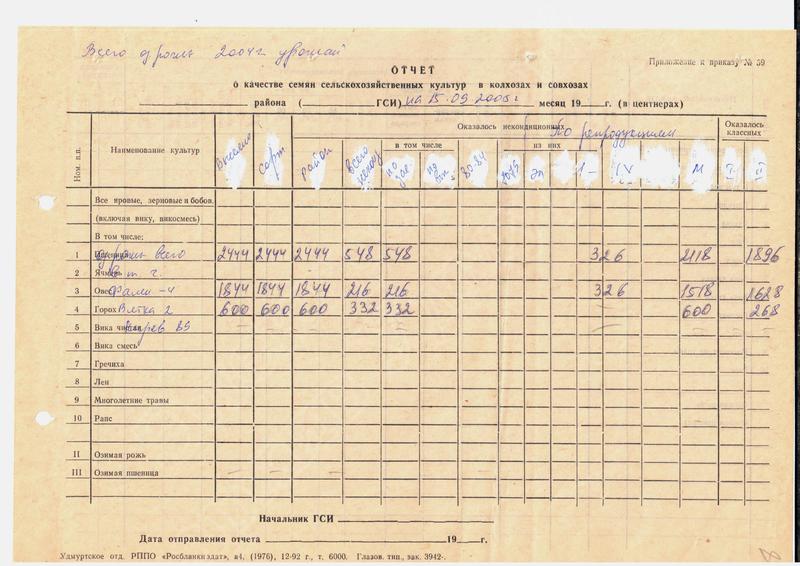 Всего озимы 2004 г урожай
Приложение к приказу № 59
ОТЧЕТ
о качестве семян сельскохозяйственных культур в колхозах и совхозах
района ( ГСИ) на 15.09.2005 г месяц 19 г. (в центнерах)
Ном. п.п.
Наименование культур
сорт
район
всего
Оказалось некондиционных
По репродукциям
в том числе
из них
по
по
80-84
IV
М
Оказалось классных
I
II
Все яровые, зерновые и бобов.
(включая вику, викосмесь)
В том числе:
1 всего 2444 2444 2444 548 548 326 2118 1896
2 Ячмень в т. ч.
3 Овес Фален-4 1844 1844 1844 216 216 326 1518 1628
4 Горох Вятка 2 600 600 600 332 332 600 268
5 Вика чистая
6 Вика смесь
7 Гречиха
8 Лен
9 Многолетние травы
10 Рапс
II Озимая рожь
III Озимая пшеница
Начальник ГСИ
Дата отправления отчета 19 г.
Удмуртское отд. РППО «Росбланкиздат», в4, (1976), 12-92 г., т. 6000. Глазов. тип., зак. 3942-.